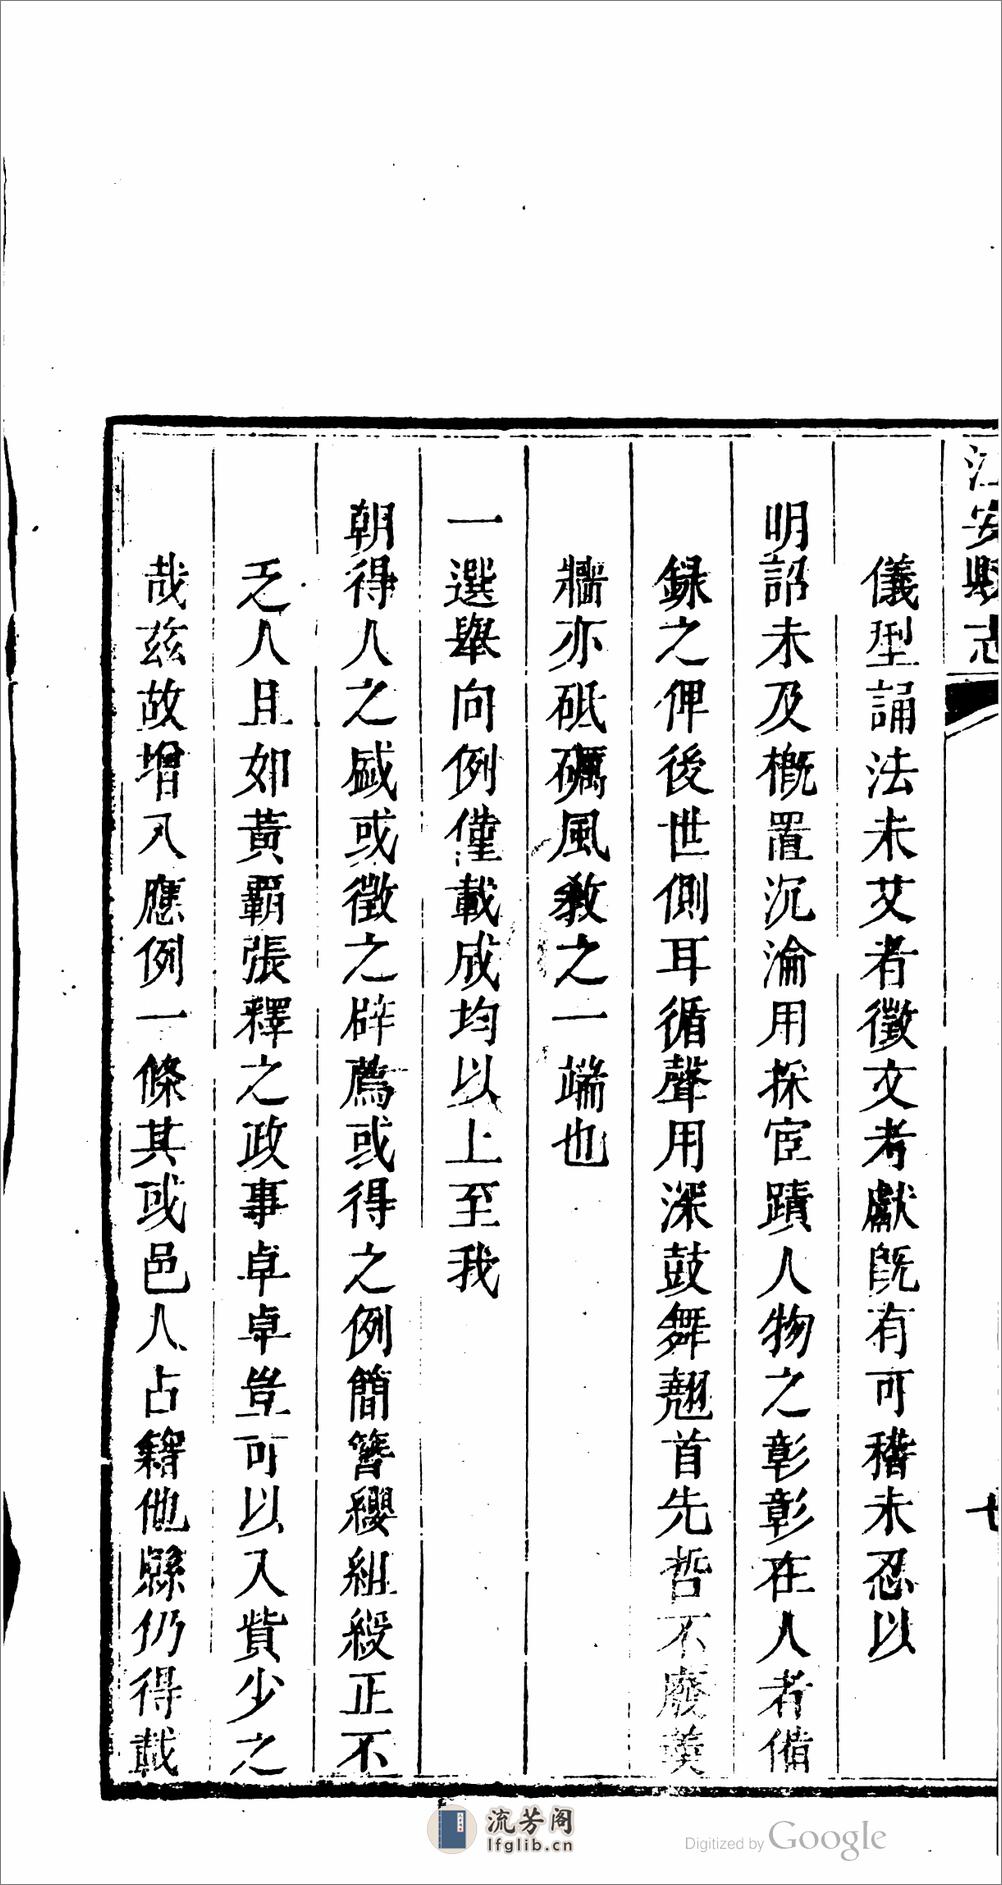 江安縣志
儀型誦法未艾者徵文考獻旣有可稽未忍以
明詔未及槪置沉淪用採宦蹟人物之彰彰在人者備
録之俾後世側耳循聲用深鼓舞翹首先哲不廢羮
牆亦砥礪風教之一端也
一選舉向例僅載成均以上至我
朝得人之盛或徵之辟薦或得之例簡簪纓組綬正不
乏人且如黃霸張釋之政事卓卓豈可以入貲少之
哉茲故增入應例一條其或邑人占籍他縣仍得載
流芳阁
lfglib.cn
Digitized by Google